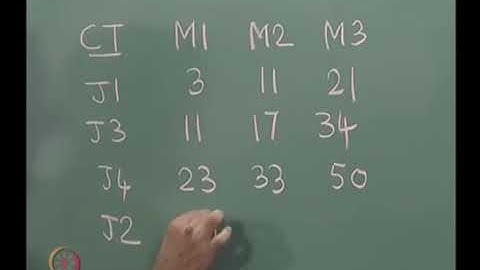 CT M1 M2 M3
J1 3 11 21
J3 11 17 34
J4 23 33 50
J2